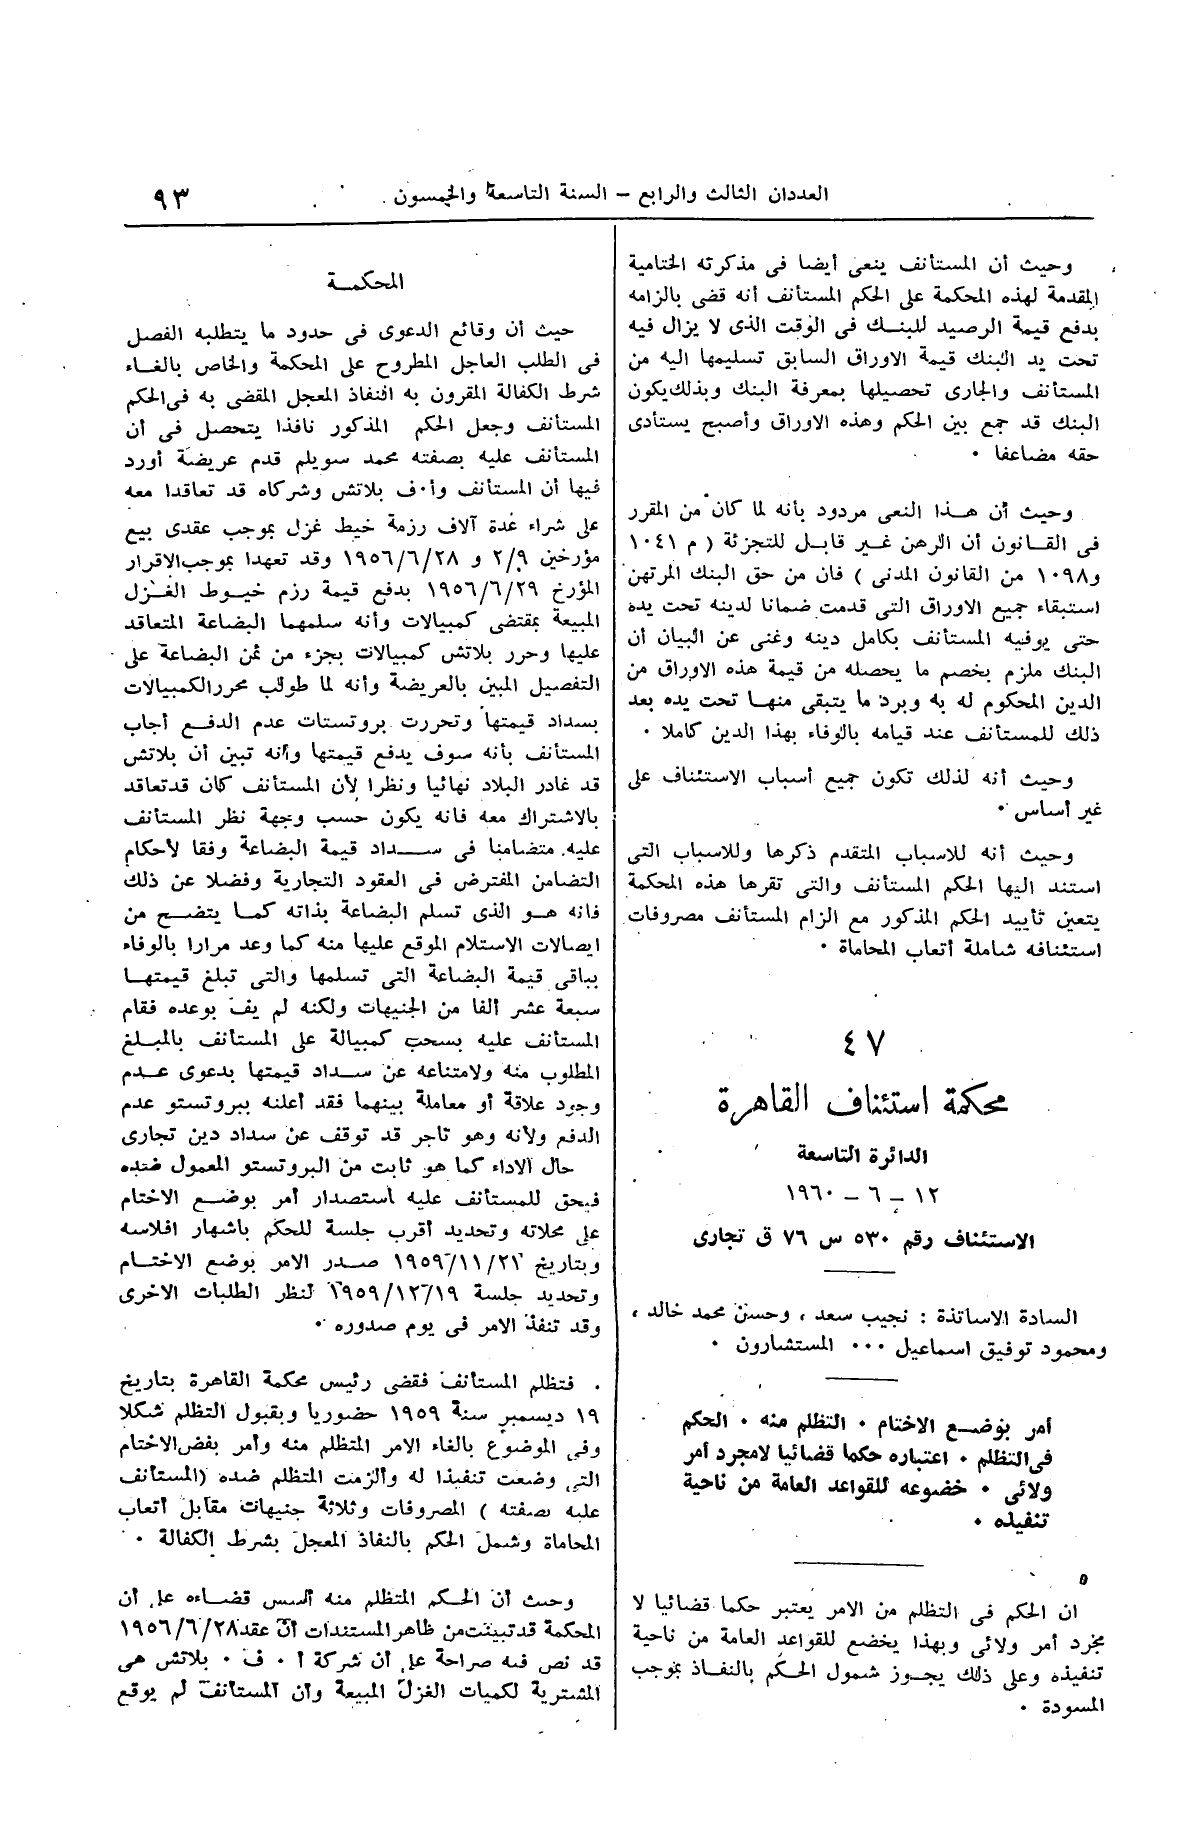 العددان الثالث والرابع – السنة التاسعة والخمسون
٩٣
وحيث أن المستأنف ينعى أيضا فى مذكرته الختامية
المقدمة لهذه المحكمة على الحكم المستأنف أنه قضى بالزامه
بدفع قيمة الرصيد للبنك فى الوقت الذى لا يزال فيه
تحت يد البنك قيمة الاوراق السابق تسليمها اليه من
المستأنف والجارى تحصيلها بمعرفة البنك وبذلك يكون
البنك قد جمع بين الحكم وهذه الاوراق وأصبح يستأدى
حقه مضاعفا ٠
وحيث أن هذا النعى مردود بأنه لما كان من المقرر
فى القانون أن الرهن غير قابل للتجزئة ( م ١٠٤١
و١٠٩٨ من القانون المدنى ) فان من حق البنك المرتهن
استبقاء جميع الاوراق التى قدمت ضمانا لدينه تحت يده
حتى يوفيه المستأنف بكامل دينه وغنى عن البيان أن
البنك ملزم بخصم ما يحصله من قيمة هذه الاوراق من
الدين المحكوم له به وبرد ما يتبقى منها تحت يده بعد
ذلك للمستأنف عند قيامه بالوفاء بهذا الدين كاملا ٠
وحيث أنه لذلك تكون جميع أسباب الاستئناف على
غير أساس ٠
وحيث أنه للاسباب المتقدم ذكرها وللاسباب التى
استند اليها الحكم المستأنف والتى تقرها هذه المحكمة
يتعين تأييد الحكم المذكور مع الزام المستأنف مصروفات
استئنافه شاملة أتعاب المحاماة ٠
٤٧
محكمة استئناف القاهرة
الدائرة التاسعة
١٢ – ٦ – ١٩٦٠
الاستئناف رقم ٥٣٠ س ٧٦ ق تجارى
السادة الاساتذة : نجيب سعد ، وحسن محمد خالد ،
ومحمود توفيق اسماعيل ٠٠٠ المستشارون ٠
أمر بوضع الاختام ٠ التظلم منه ٠ الحكم
فى التظلم ٠ اعتباره حكما قضائيا لا مجرد أمر
ولائى ٠ خضوعه للقواعد العامة من ناحية
تنفيذه ٠
ان الحكم فى التظلم من الامر يعتبر حكما قضائيا لا
مجرد أمر ولائى وبهذا يخضع للقواعد العامة من ناحية
تنفيذه وعلى ذلك يجوز شمول الحكم بالنفاذ بموجب
المسودة ٠
المحكمة
حيث أن وقائع الدعوى فى حدود ما يتطلبه الفصل
فى الطلب العاجل المطروح على المحكمة والخاص بالغاء
شرط الكفالة المقرون به النفاذ المعجل المقضى به فى الحكم
المستأنف وجعل الحكم المذكور نافذا يتحصل فى أن
المستأنف عليه بصفته محمد سويلم قدم عريضة أورد
فيها أن المستأنف وأ٠ف بلاتش وشركاه قد تعاقدا معه
على شراء عدة آلاف رزمة خيط غزل بموجب عقدى بيع
مؤرخين ٢/٩ و ١٩٥٦/٦/٢٨ وقد تعهدا بموجب الاقرار
المؤرخ ١٩٥٦/٦/٢٩ بدفع قيمة رزم خيوط الغزل
المبيعة بمقتضى كمبيالات وأنه سلمهما البضاعة المتعاقد
عليها وحرر بلاتش كمبيالات بجزء من ثمن البضاعة على
التفصيل المبين بالعريضة وأنه لما طولب محرر الكمبيالات
بسداد قيمتها وتحررت بروتستات عدم الدفع أجاب
المستأنف بأنه سوف يدفع قيمتها وأنه تبين أن بلاتش
قد غادر البلاد نهائيا ونظرا لأن المستأنف كان قد تعاقد
بالاشتراك معه فانه يكون حسب وجهة نظر المستأنف
عليه متضامنا فى سداد قيمة البضاعة وفقا لأحكام
التضامن المفترض فى العقود التجارية وفضلا عن ذلك
فانه هو الذى تسلم البضاعة بذاته كما يتضح من
ايصالات الاستلام الموقع عليها منه كما وعد مرارا بالوفاء
بباقى قيمة البضاعة التى تسلمها والتى تبلغ قيمتها
سبعة عشر ألفا من الجنيهات ولكنه لم يف بوعده فقام
المستأنف عليه بسحب كمبيالة على المستأنف بالمبلغ
المطلوب منه ولامتناعه عن سداد قيمتها بدعوى عدم
وجود علاقة أو معاملة بينهما فقد أعلنه ببروتستو عدم
الدفع ولأنه وهو تاجر قد توقف عن سداد دين تجارى
حال الاداء كما هو ثابت من البروتستو المعمول ضده
فيحق للمستأنف عليه استصدار أمر بوضع الاختام
على محلاته وتحديد أقرب جلسة للحكم باشهار افلاسه
وبتاريخ ١٩٥٩/١١/٢٢ صدر الامر بوضع الاختام
وتحديد جلسة ١٩٥٩/١٢/١٩ لنظر الطلبات الاخرى
وقد تنفذ الامر فى يوم صدوره ٠
فتظلم المستأنف فقضى رئيس محكمة القاهرة بتاريخ
١٩ ديسمبر سنة ١٩٥٩ حضوريا وبقبول التظلم شكلا
وفى الموضوع بالغاء الامر المتظلم منه وأمر بفض الاختام
التى وضعت تنفيذا له وألزمت المتظلم ضده (المستأنف
عليه بصفته ) المصروفات وثلاثة جنيهات مقابل أتعاب
المحاماة وشمل الحكم بالنفاذ المعجل بشرط الكفالة ٠
وحيث أن الحكم المتظلم منه أسس قضاءه على أن
المحكمة قد تبينت من ظاهر المستندات أن عقد ١٩٥٦/٦/٢٨
قد نص فيه صراحة على أن شركة أ ٠ ف ٠ بلاتش هى
المشترية لكميات الغزل المبيعة وأن المستأنف لم يوقع